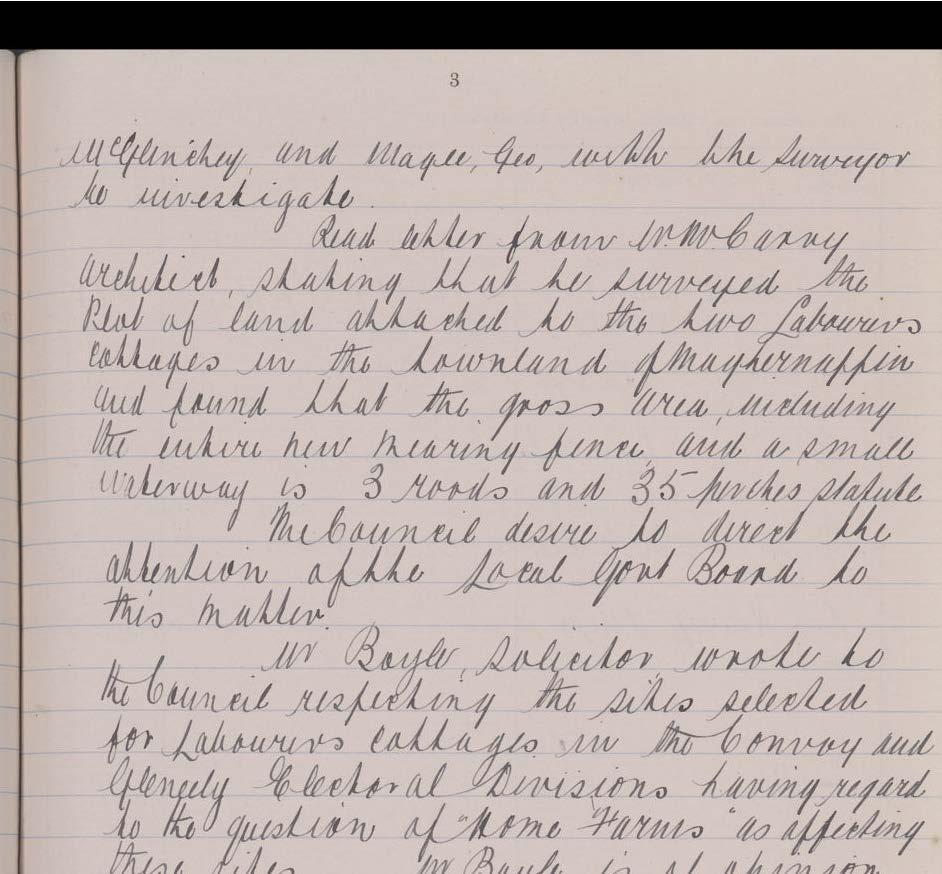 3
McGlinchey, and Magee, Geo, with the Surveyor
to investigate.
Read letter from Mr. McCarry
Architect, stating that he surveyed the
Plot of land attached to the two Labourers
cottages in the townland of Maghernappin
and found that the gross area, including
the entire new mearing fence, and a small
waterway is 3 roods and 35 perches statute
The Council desire to direct the
attention of the Local Govt Board to
this matter.
Mr Boyle, Solicitor wrote to
the Council respecting the sites selected
for Labourers cottages in the Convoy and
Gleneely Electoral Divisions having regard
to the question of "Home Farms" as affecting
these sites Mr Boyle is of opinion